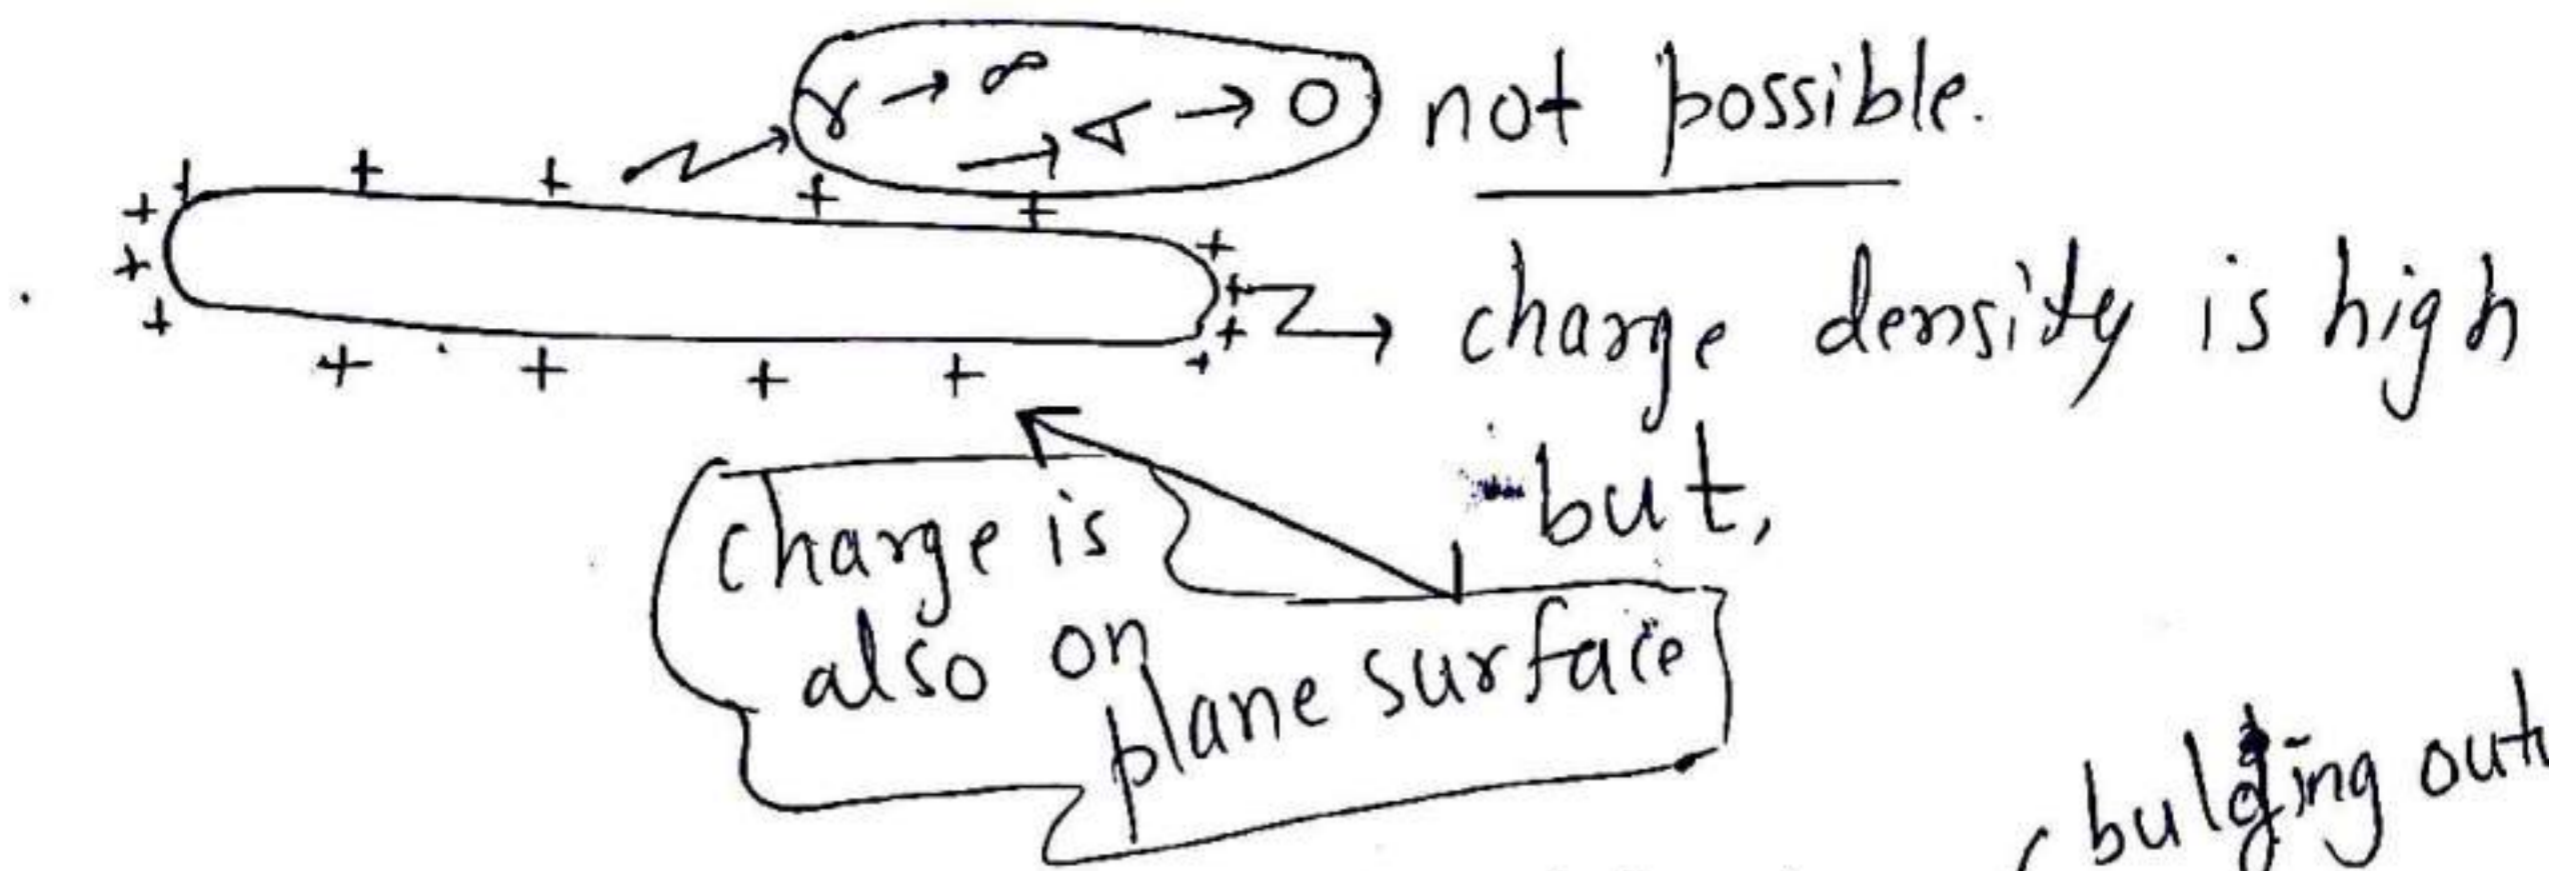 r → ∞
→ σ → 0 not possible.
charge density is high
but,
charge is
also on
plane surface
bulging out